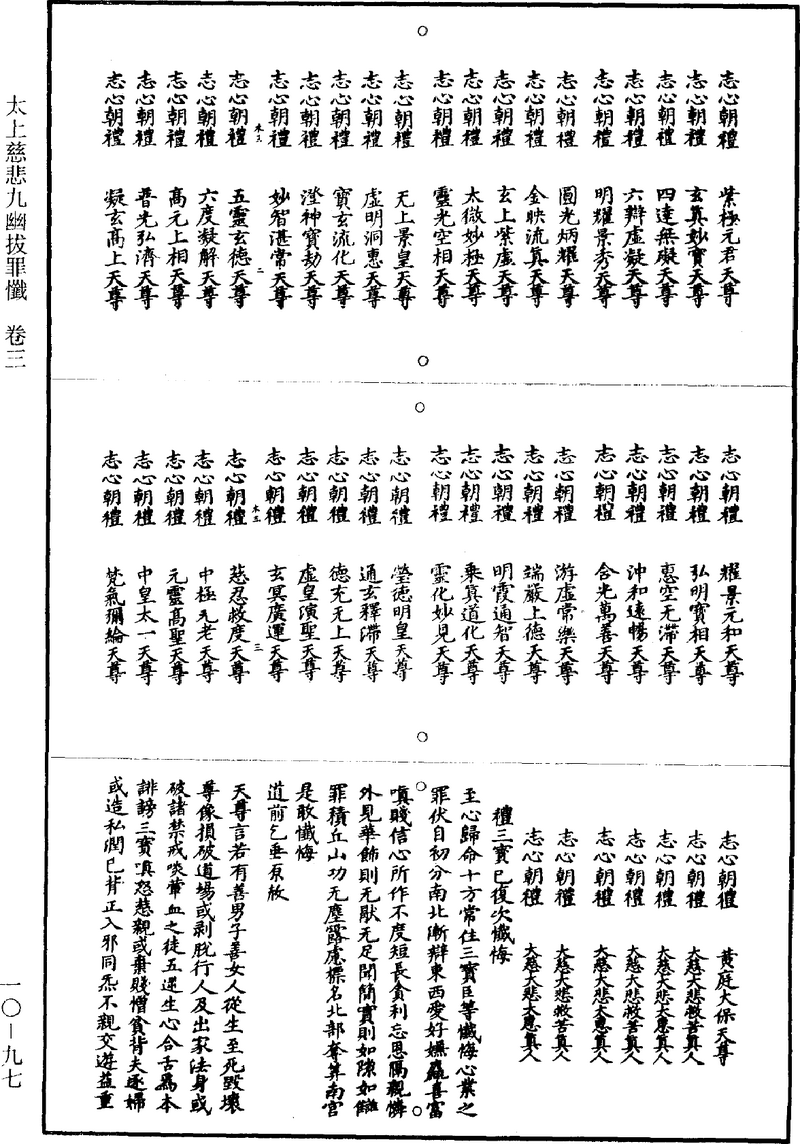 太上慈悲九幽拔罪懺　卷三
一〇—九七
志心朝禮　紫極元君天尊
志心朝禮　玄真妙寶天尊
志心朝禮　四達無礙天尊
志心朝禮　六辯虛凝天尊
志心朝禮　明耀景秀天尊
志心朝禮　圓光炳耀天尊
志心朝禮　金映流真天尊
志心朝禮　玄上紫虛天尊
志心朝禮　太微妙極天尊
志心朝禮　靈光空相天尊
志心朝禮　天上景皇天尊
志心朝禮　虛明洞惠天尊
志心朝禮　寶玄流化天尊
志心朝禮　澄神寶劫天尊
志心朝禮　妙智湛常天尊
二
志心朝禮　五靈玄德天尊
志心朝禮　六度凝解天尊
志心朝禮　高元上相天尊
志心朝禮　普光弘濟天尊
志心朝禮　凝玄高上天尊
志心朝禮　耀景元和天尊
志心朝禮　弘明寶相天尊
志心朝禮　惠空无滯天尊
志心朝禮　沖和遠暢天尊
志心朝禮　含光萬善天尊
志心朝禮　游虛常樂天尊
志心朝禮　端嚴上德天尊
志心朝禮　明霞通智天尊
志心朝禮　乘真道化天尊
志心朝禮　靈化妙見天尊
志心朝禮　瑩徳明皇天尊
志心朝禮　通玄釋滯天尊
志心朝禮　德充无上天尊
志心朝禮　虛皇演聖天尊
志心朝禮　玄冥廣運天尊
三
志心朝禮　慈忍救度天尊
志心朝禮　中極元老天尊
志心朝禮　元靈高聖天尊
志心朝禮　中皇太一天尊
志心朝禮　梵氣彌綸天尊
志心朝禮　黄庭大保天尊
志心朝禮　大慈大悲救苦真人
志心朝禮　大慈大悲大惠真人
志心朝禮　大慈大悲救苦真人
志心朝禮　大慈大悲大惠真人
志心朝禮　大慈大悲救苦真人
志心朝禮　大慈大悲大惠真人
禮三寶已復次懺悔
至心歸命十方常住三寶臣等懺悔心業之
罪伏自初分南北漸辯東西愛好嫌麤喜富
嗔賤信心所作不度短長貪利忘恩隔親憐
外見華飾則无猒无足聞簡實則如隙如讎
罪積丘山功无塵露慮標名北部奪筭南宮
是敢懺悔
道前乞垂原赦
天尊言若有善男子善女人從生至死毀壞
尊像損破道場或剥脱行人及出家法身或
破諸禁戒啖葷血之徒五逆生心合舌為本
誹謗三寶嗔怒慈親或棄賤憎貧背夫逐婦
或造私潤已背正入邪同炁不親交遊益重